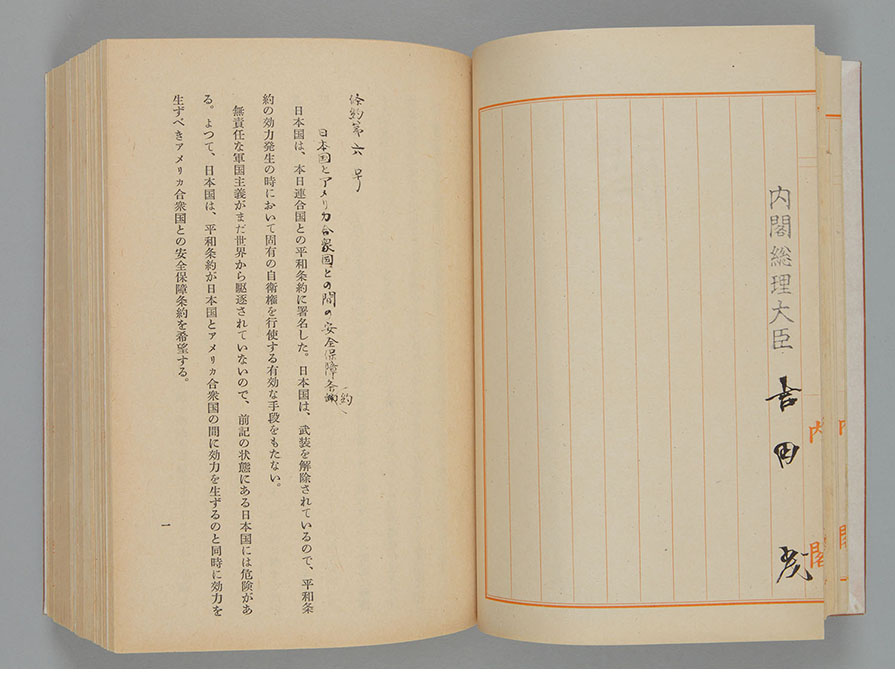 内閣
内閣
内閣総理大臣 吉田茂
条約第六号
約
日本国とアメリカ合衆国との間の安全保障条
日本国は、本日連合国との平和条約に署名した。日本国は、武装を解除されているので、平和条
約の効力発生の時において固有の自衛権を行使する有効な手段をもたない。
無責任な軍国主義がまだ世界から駆逐されていないので、前記の状態にある日本国には危険があ
る。よつて、日本国は、平和条約が日本国とアメリカ合衆国の間に効力を生ずるのと同時に効力を
生ずべきアメリカ合衆国との安全保障条約を希望する。
一